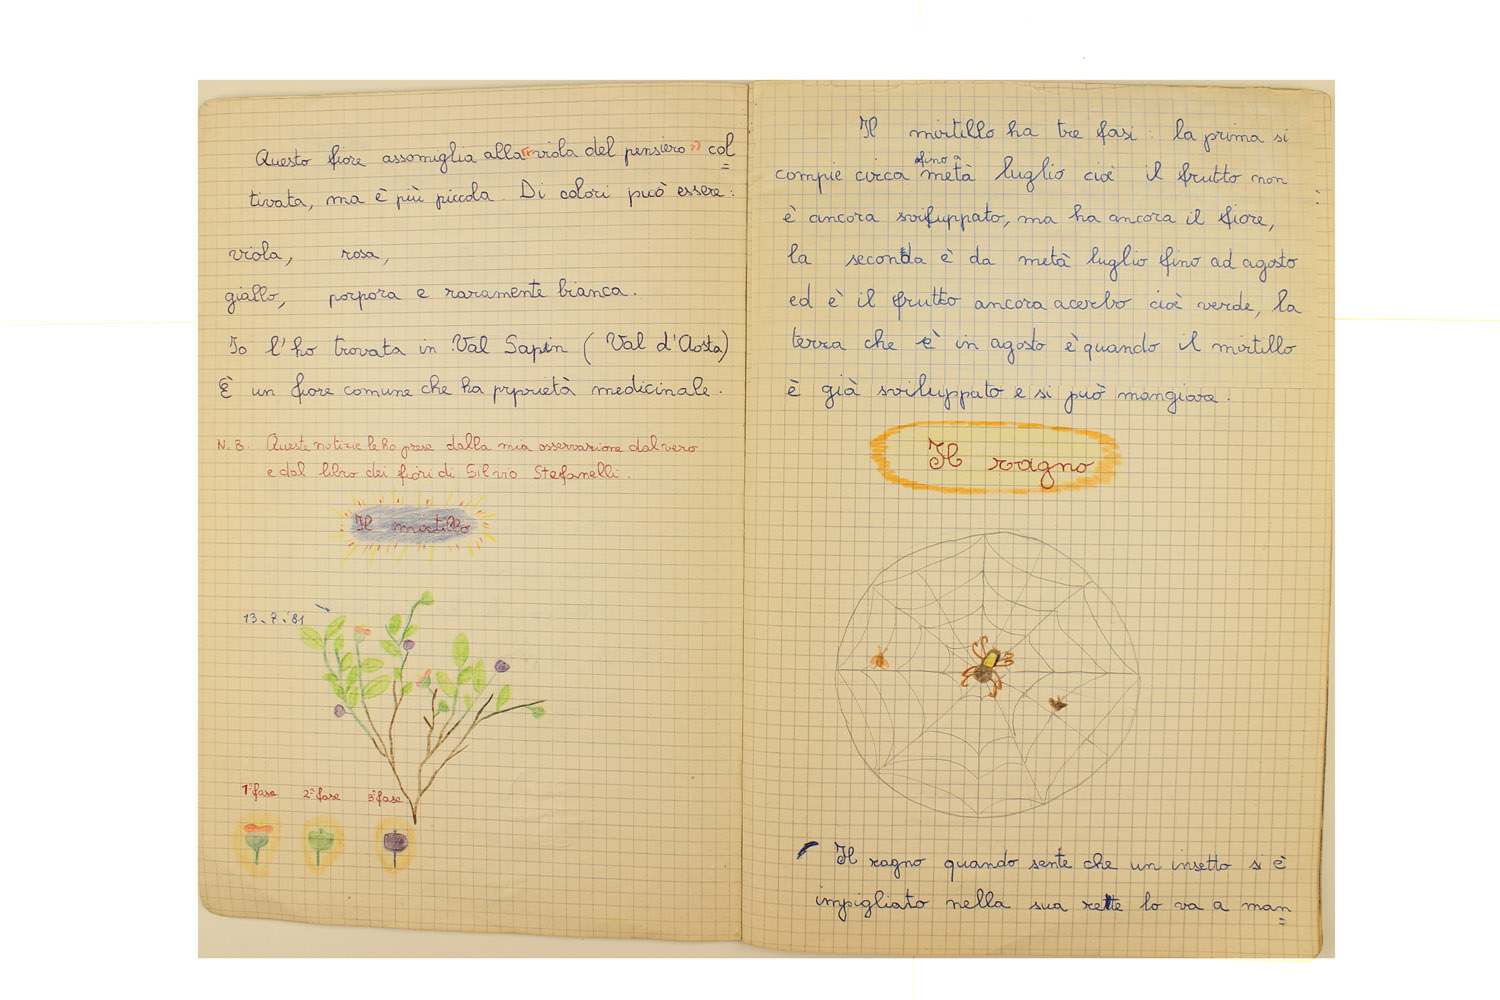 Questo fiore assomiglia alla "viola del pensiero" col
tivata, ma è più piccola. Di colori può essere:
viola, rosa,
giallo, porpora e raramente bianca.
Io l'ho trovata in Val Sapin (Val d'Aosta)
È un fiore comune che ha prprietà medicinale.
N.B. Queste notizie le ho prese dalla mia osservazione dal vero
e dal libro dei fiori di Silvio Stefanelli.
Il mirtillo
13.7.'81
1ª fase 2ª fase 3ª fase
Il mirtillo ha tre fasi: la prima si
compie circa fino a metà luglio cioè il frutto non
è ancora sviluppato, ma ha ancora il fiore,
la seconda è da metà luglio fino ad agosto
ed è il frutto ancora acerbo cioè verde, la
terza che è in agosto è quando il mirtillo
è già sviluppato e si può mangiare.
Il ragno
Il ragno quando sente che un insetto si è
impigliato nella sua rette lo va a man